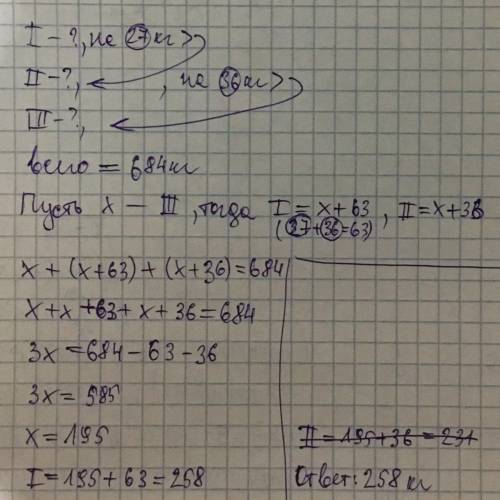 I - ?, на 27 кг >
II - ?, , на 36 кг >
III - ?,
всего = 684 кг
Пусть x — III, тогда I = x + 63, II = x + 36
(27 + 36 = 63)
x + (x + 63) + (x + 36) = 684
x + x + 63 + x + 36 = 684
3x = 684 - 63 - 36
3x = 585
x = 195
I = 195 + 63 = 258
II = 195 + 36 = 231
Ответ: 258 кг